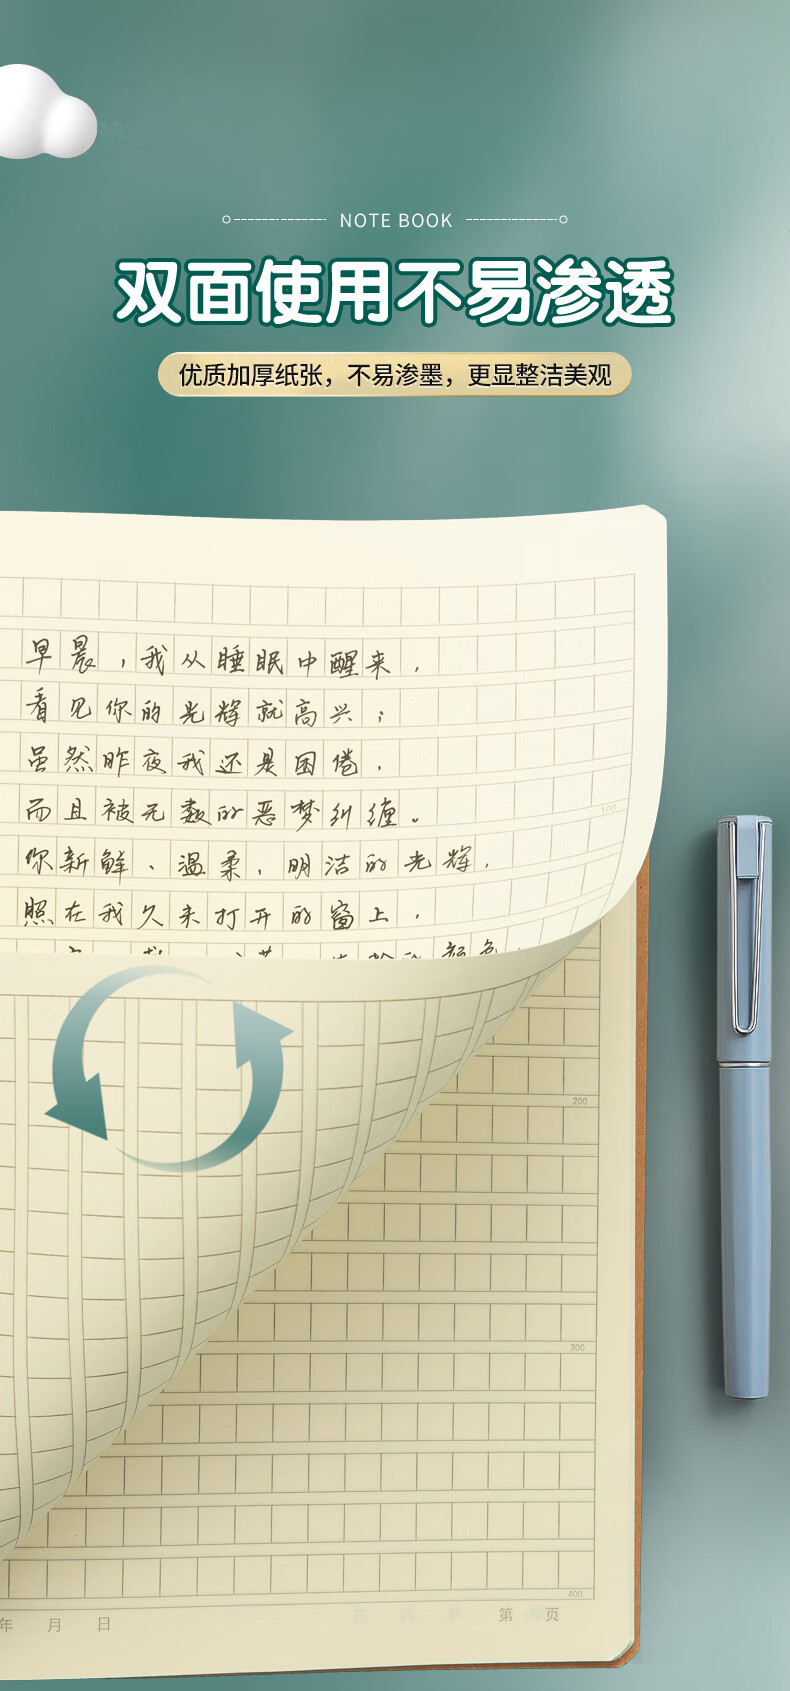 NOTE BOOK
双面使用不易渗透
优质加厚纸张，不易渗墨，更显整洁美观
早晨，我从睡眠中醒来，
看见你的光辉就高兴；
虽然昨夜我还是困倦，
而且被无数的恶梦纠缠。
你新鲜、温柔，明洁的光辉，
照在我久未打开的窗上，
100
200
300
400
年 月 日
第 页